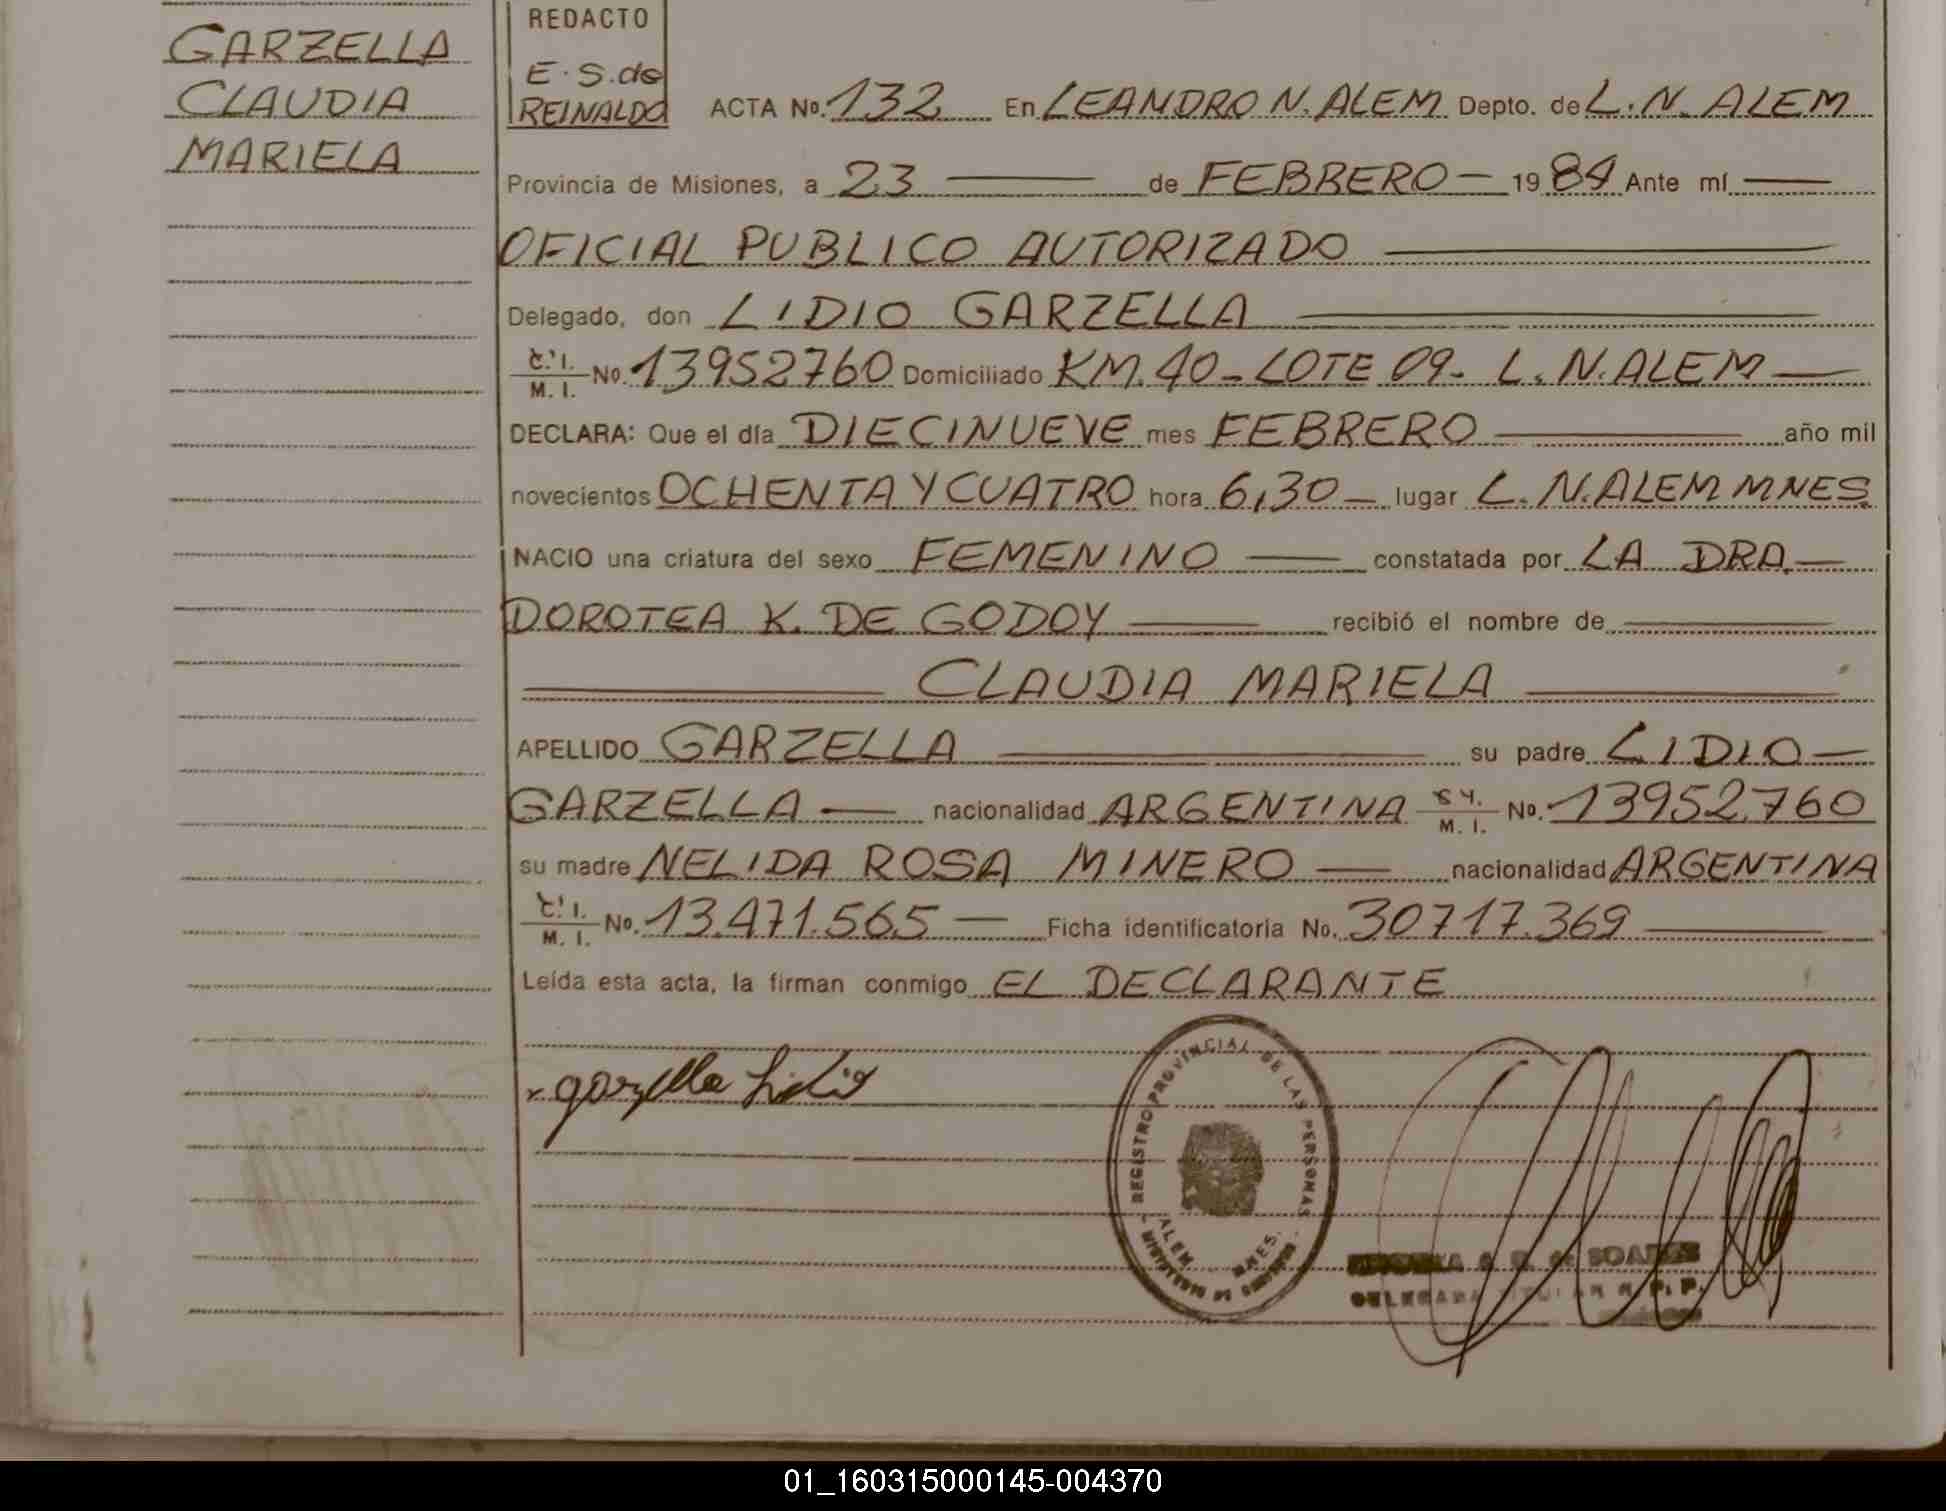 GARZELLA
CLAUDIA
MARIELA
REDACTO
E. S. de
REINALDO
ACTA No. 132 En LEANDRO N. ALEM Depto. de L. N. ALEM
Provincia de Misiones, a 23 de FEBRERO 1984 Ante mí
OFICIAL PUBLICO AUTORIZADO
Delegado, don LIDIO GARZELLA
C. I.
M. I. No. 13952760 Domiciliado KM. 40 - LOTE 09 - L. N. ALEM
DECLARA: Que el día DIECINUEVE mes FEBRERO año mil
novecientos OCHENTA Y CUATRO hora 6,30 lugar L. N. ALEM MNES.
NACIO una criatura del sexo FEMENINO constatada por LA DRA.
DOROTEA K. DE GODOY recibió el nombre de
CLAUDIA MARIELA
APELLIDO GARZELLA su padre LIDIO
GARZELLA nacionalidad ARGENTINA M. I. No. 13952.760
su madre NELIDA ROSA MINERO nacionalidad ARGENTINA
C. I.
M. I. No. 13.471.565 Ficha identificatoria No. 30717.369
Leída esta acta, la firman conmigo EL DECLARANTE
garzella Lidio
REGISTRO PROVINCIAL DE LAS PERSONAS
ALEM MNES.
SOARES
DELEGADA TITULAR R. P. P.
01_160315000145-004370